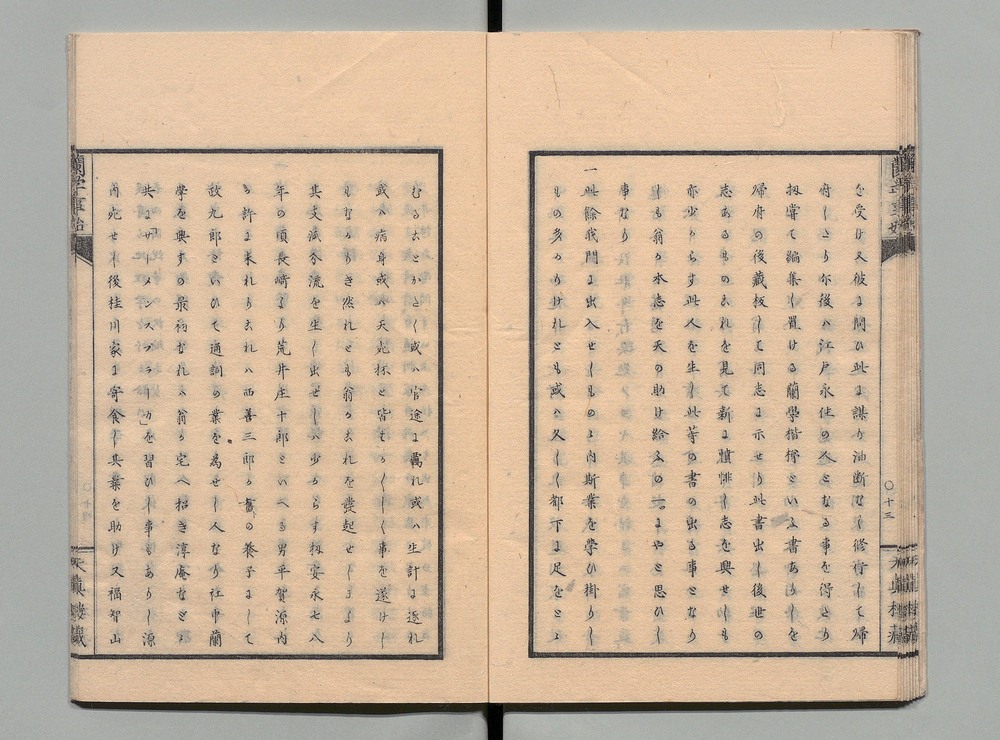 を受け又彼に問ひ此に謀り油断なく修行して帰
府しさり尓後ハ江戸永住の人となる事を得さり
扨嘗て編集し置ける蘭學楷梯といふ書ありしを
帰府の後蔵板して同志に示せり此書出し後世の
志あるものこれを見て新に憤悱し志を興せしも
亦少からす此人を生し此等の書の出る事となり
しも翁の本志を天の助け給ふの一つにやと思ひし
事なり
一此餘我門に出入せしもの之内斯業を學ひ掛りし
もの多かりけれとも或ハ久しく都下に足をとゝ
むることかたく或ハ官途に覊れ或ハ生計に逐れ
或ハ病身或ハ天死抔と皆もかくしく事を遂けし
ものなき然れとも翁かこれを發起せしにより
其支流分流を生し出せしハ少からす扨安永七八
年の頃長崎より荒井庄十郎といへる男平賀源内
か許に来れりこれハ西善三郎か舊の養子にして
政九郎といひて通詞の業を為せし人なり社中蘭
學を興すの最初なれハ翁か宅へ招き淳庵なとと
共に「サーメンスプラーカ」を習ひし事もありし源
内死せし後桂川家に寄食し其業を助け又福智山
蘭学事始
〇十三
天眞樓蔵
蘭学事始
〇十四
天眞樓蔵